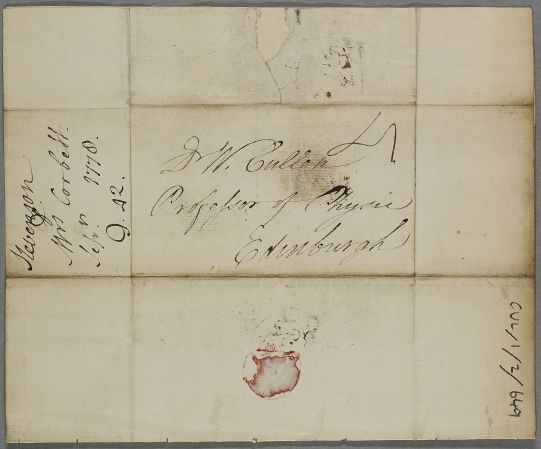 Dr W. Cullen
Professor of Physic
Edinburgh
Stevenson
Mrs Corbett.
Sepr. 1778.
9. 42.
CUL/1/2/649